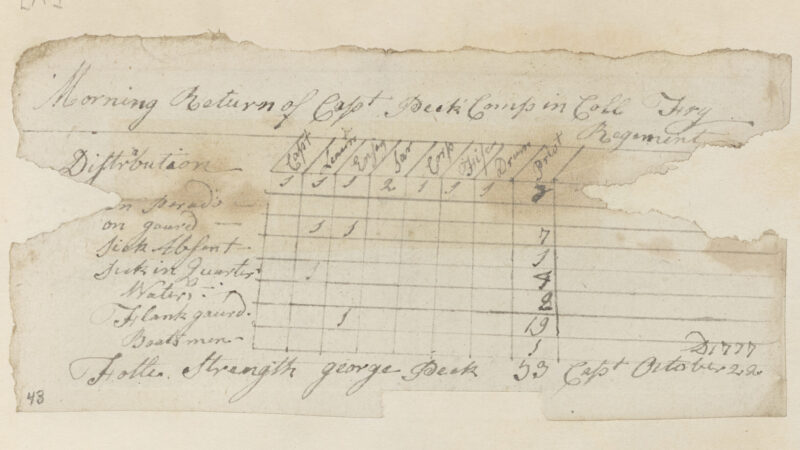 Morning Return of Capt Peck Comp in Coll Fry
Regement
Distrabution
Capt Leaut Ensn Sar Corp Fife Drum Privt
1 1 1 2 1 1 1
In perade
on gaurd 1 1 7
Sick Absent 1
Sick in Quarter 1
Waters
Flank gaurd 1 19
Boatsmen 1
D 1777
Totle Strength george Peck 33 Capt October 22
48